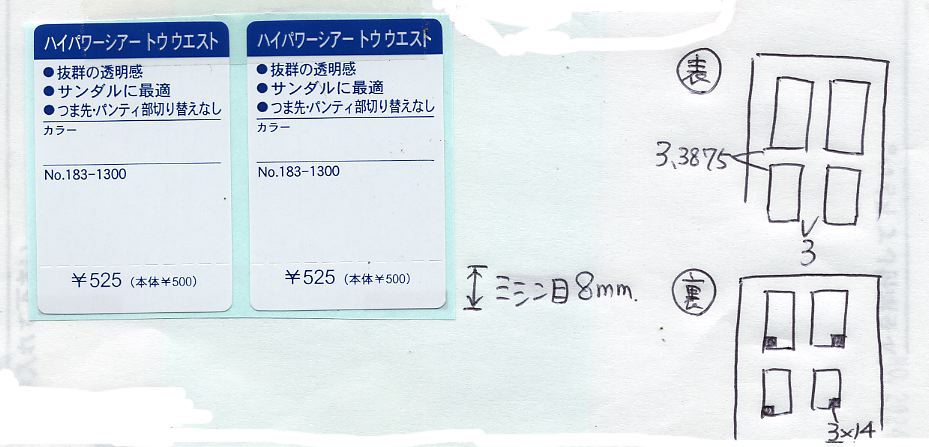 ハイパワーシアー トウ ウエスト
●抜群の透明感
●サンダルに最適
●つま先・パンティ部切り替えなし
カラー
No.183-1300
￥525（本体￥500）
ハイパワーシアー トウ ウエスト
●抜群の透明感
●サンダルに最適
●つま先・パンティ部切り替えなし
カラー
No.183-1300
￥525（本体￥500）
ミシン目8mm.
表
3.3875
3
裏
3×14